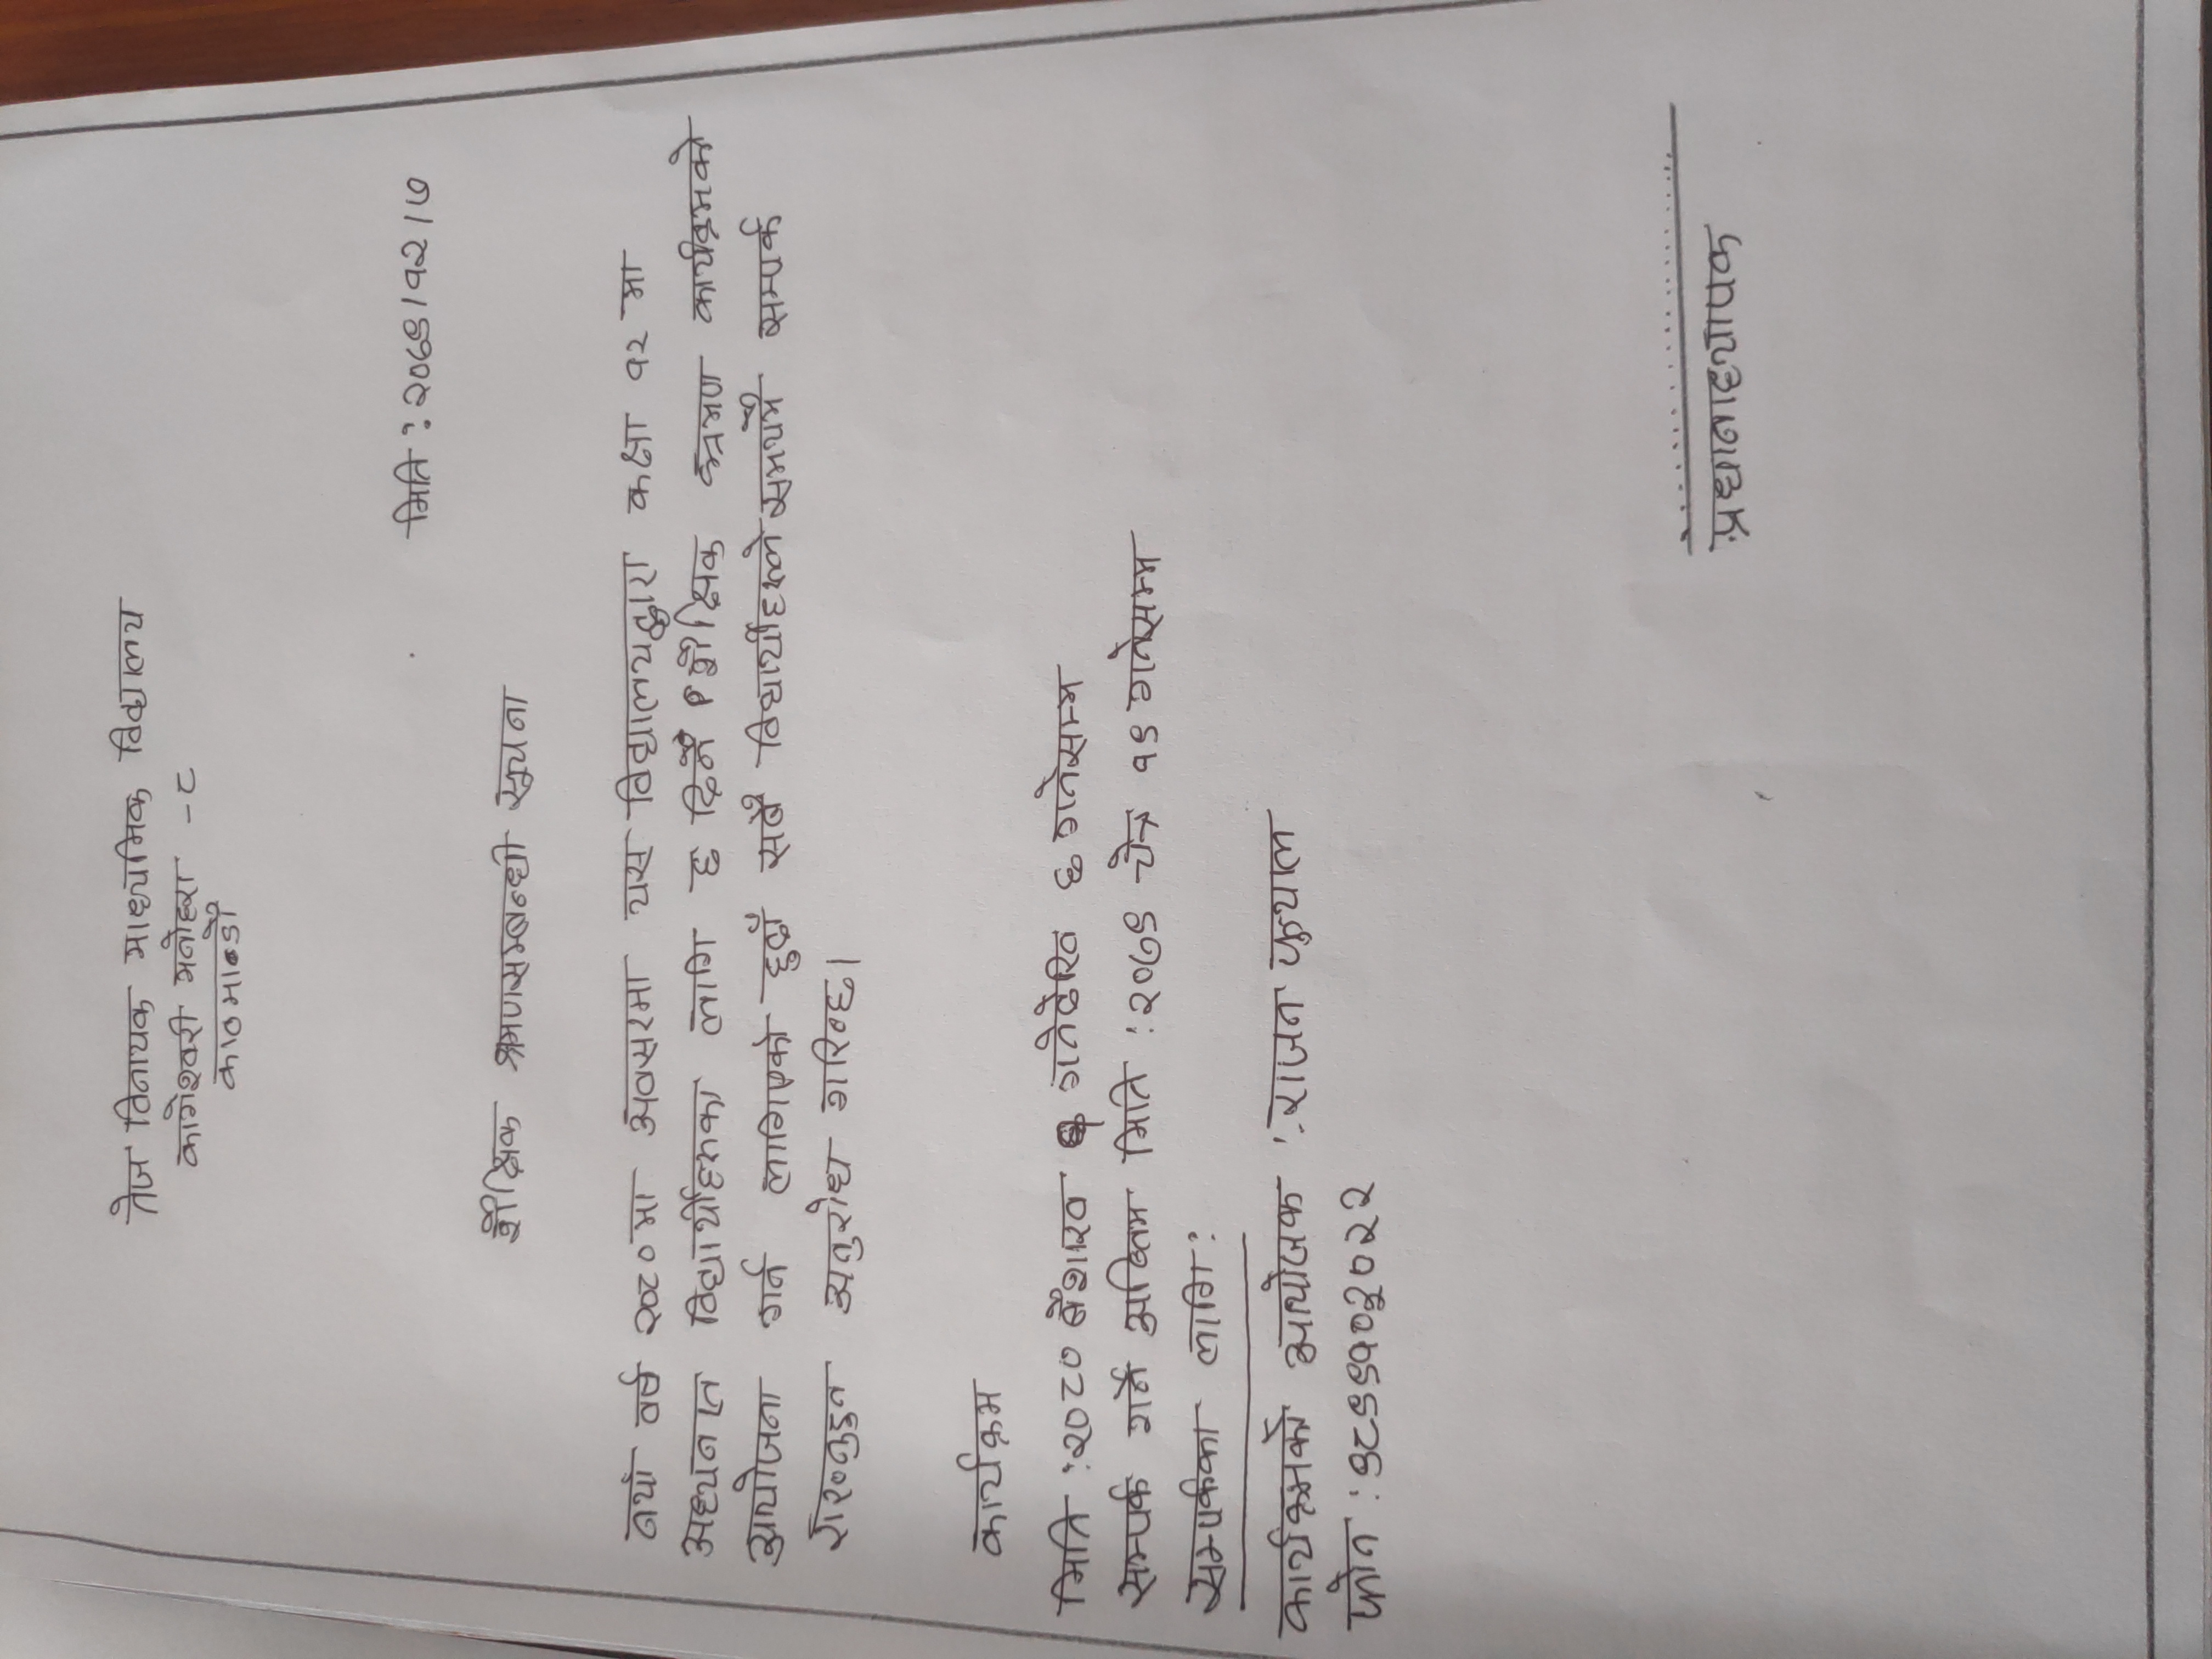 तेज विनायक माध्यमिक विद्यालय
कागेश्वरी मनोहरा -८
काठमान्डौ
मिति : २०७९।१२।७
शैक्षिक भ्रमणसम्बन्धी सूचना
नयाँ वर्ष २०८०मा अवसरमा यस विद्यालयद्वारा कक्षा १२ मा
अध्यनरत विद्यार्थीहरुका लागि ६ दिने शैक्षिक भ्रमण कार्यक्रमको
आयोजना गर्न लागिएको हुदाँ सबै विद्यार्थीहरुले समयमै सम्पर्क
राख्नुहुन अनुरोध गरिन्छ।
कार्यक्रम
मिति : २०८० बैशाख १ गतेदेखि ६ गतेसम्म
सम्पर्क गर्ने अन्तिम मिति : २०७९ चैत्र १९ गतेसम्म
सम्पर्कका लागि :
कार्यक्रमको आयोजक : राजन फुयाल
फोन : ९८९९१०३०२२
प्रधानाध्यापक